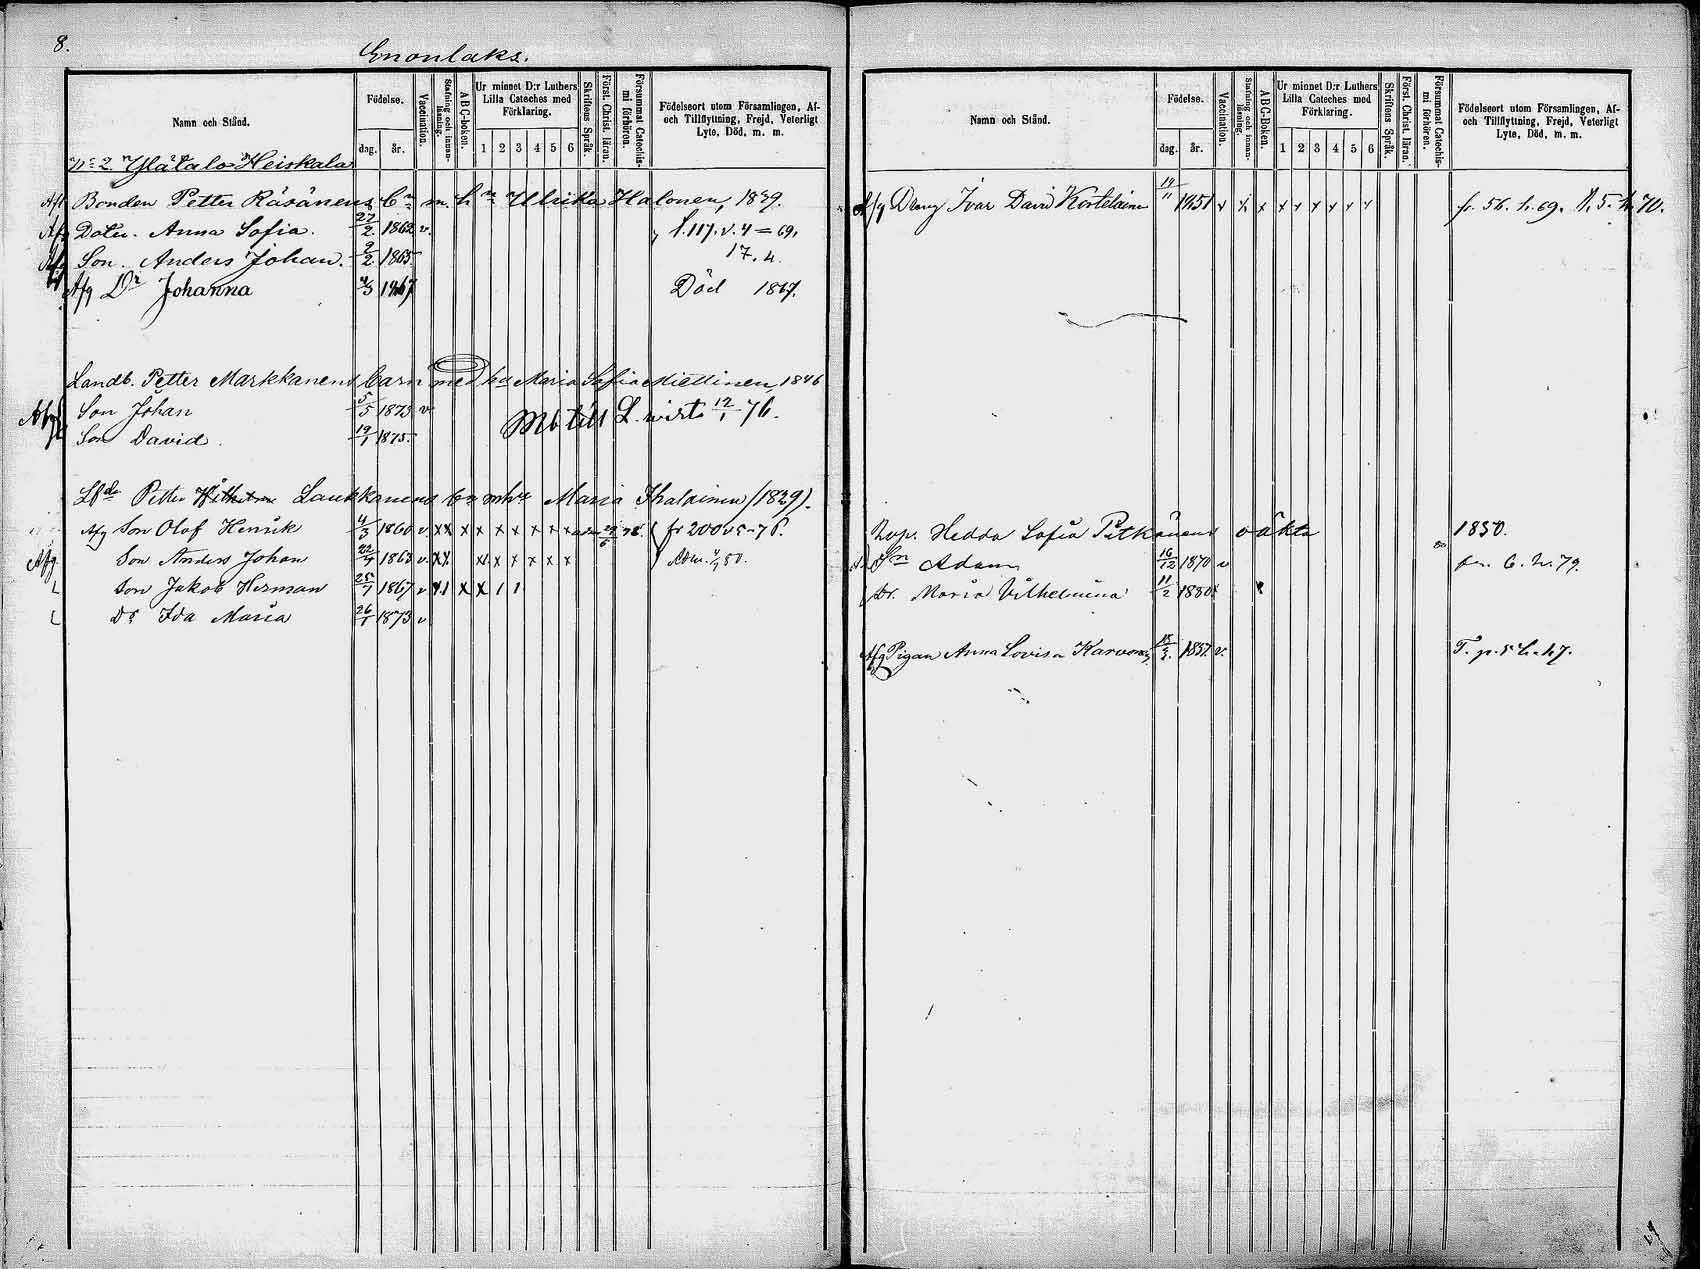 8.
Enonlaks.
Namn och Stånd.
Födelse.
dag.
år.
Vaccination.
Stafning och innan-läsning.
ABC-boken.
Ur minnet D:r Luthers Lilla Cateches med Förklaring.
1 2 3 4 5 6
Skriftens Språk.
Först. Christ. läran.
Försummat Catechis-mi förhören.
Födelseort utom Församlingen, Af-
och Tillflyttning, Frejd, Veterligt
Lyte, Död, m. m.
n:o 2 Ylätalo Heiskala
Afg Bonden Petter Räsänens Bn m. hn Ulrika Halonen, 1839.
Afg Doter. Anna Sofia. 27/2 1862 v. f. 117. v. 4 = 69.
Afg Son Anders Johan. 9/2 1865 17. 4.
Afg Dr Johanna 4/3 1867 Död 1867.
Landb. Petter Markkanens barn med hu Maria Sofia Miettinen, 1846
Afg Son Johan 5/5 1873 v Mb till L. wirta 12/1 76.
Son David 19/1 1875
Lbde Petter Laukkanens bn mhu Maria Ihalainen (1829).
Afg Son Olof Henrik 4/3 1860 v. x x x x x x x x x adm 29/6 78. fr 200 v 5-76.
Afg. Son Anders Johan 22/4 1863 v. x x x x x x x x
Son Jakob Herman 25/7 1867 v
Dr Ida Maria 26/1 1873 v
Namn och Stånd.
Födelse.
dag.
år.
Vaccination.
Stafning och innan-läsning.
ABC-Boken.
Ur minnet D:r Luthers Lilla Cateches med Förklaring.
1 2 3 4 5 6
Skriftens Språk.
Först. Christ. läran.
Försummat Catechis-mi förhören.
Födelseort utom Församlingen, Af-
och Tillflyttning, Frejd, Veterligt
Lyte, Död, m. m.
Afg Dreng Ivar David Kortelainen 14/11 1851 v x x x x x x x x fr. 56. h. 69. f. 5. h. 70.
Inp. Hedda Sofia Pitkänens oäkta 1850.
Sn Adam 16/12 1870 v fr. 6. h. 79.
Dr. Maria Vilhelmina 11/2 1880
Afg Pigan Anna Lovisa Karvonen 1857. v. T. p. 5 h. 47.